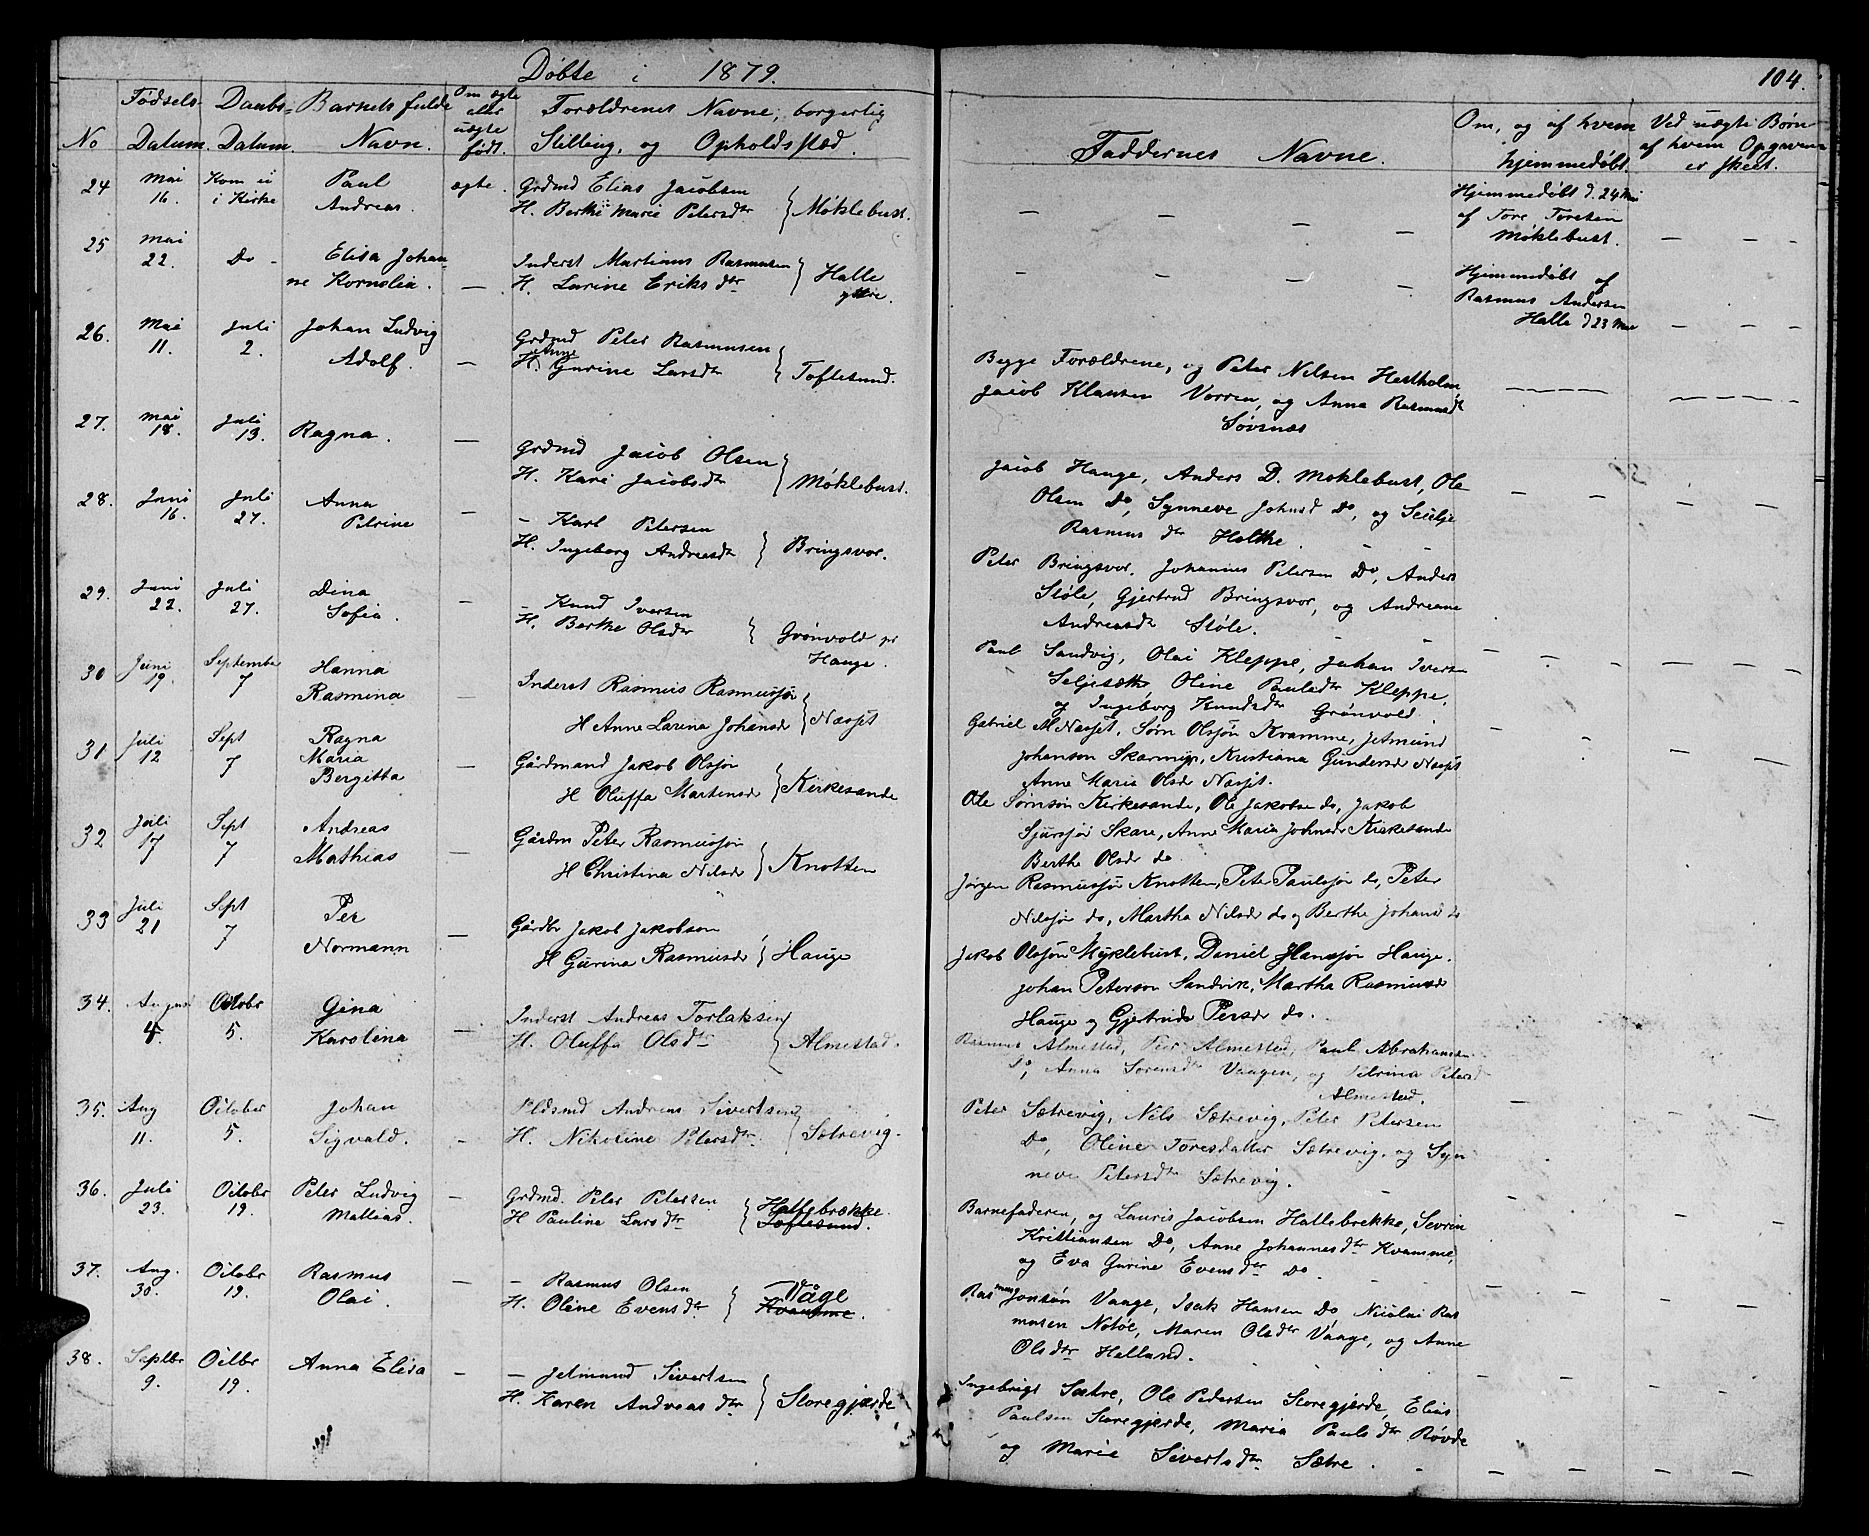 Døbte i 1879.
104.
No
Fødsels-
Datum.
Daabs-
Datum.
Barnets fulde
Navn.
Om ægte
eller
uægte
født.
Forældrenes Navne, borgerlig
Stilling, og Opholdssted.
Faddernes Navne.
Om, og af hvem
hjemmedøbt.
Ved uægte Børn
af hvem Opgaven
er skeet.
24 Mai 16. Kom ei i Kirke Paul Andreas. ægte.
Grdmd Elias Jacobsen
H. Berthe Marie Petersdtr } Møklebust.
Hjemmedøbt d. 24 Mai
af Tore Torsten
Møklebust.
25 Mai 22. Do - Elisa Johan-
ne Kornelia. —
Inderst Martinus Rasmusen
H. Larine Eriksdtr } Halle ytre.
Hjemmedøbt af
Rasmus Andersen
Halle d 23 Mai
26. Mai 11. Juli 2. Johan Ludvig
Adolf. —
Grdmd Peter Rasmusen
H. Anne Gurine Larsdtr } Toftesund.
Begge Forældrene, og Peter Nilsen Hestholm,
Jacob Klausen Vorren, og Anna Rasmusdt
Søvsnæs
27. Mai 18. Juli 13. Ragna. —
Grdmd Jacob Olsen
H. Kari Jacobsdtr } Møklebust.
Jacob Hauge, Anders D. Moklebust, Ole
Olsen Do, Synneve Johnsd Do, og
Rasmusdtr Holthe.
28. Juni 16. Juli 27. Anna
Petrine —
— Karl Petersen
H. Ingeborg Andreasdtr } Bringsvor.
Peter Bringsvor, Johannes Petersen Do, Anders
Støle, Gjertrud Bringsvor, og Andreane
Andreasdtr Støle.
29. Juni 22. Juli 27. Dina
Sofia. —
— Knud Iversen
H. Berthe Olsdtr } Grønvold pr
Hauge.
Paul Sandvig, Olai Kleppe, Johan Iversen
Seljesæth, Oline Paulsdtr Kleppe,
og Ingeborg Knudsdtr Grønvold.
30 Juni 19. September 7 Hanna
Rasmina —
Inderst Rasmus Rasmussøn
H Anne Larina Johansdr } Næsjet
Gabriel M. Næsjet, Sørn Olsøn Kvamme, Jetmund
Johanson Skarmyr, Kristiana Gundersdr Næsjet
Anne Maria Olsdr Næsjt.
31 Juli 12 Sept 7 Ragna
Maria
Bergitta —
Gårdmand Jakob Olsøn
H Oluffa Martensdr } Kirkesande
Ole Sørnsøn Kirkesande, Ole Jakobsn do, Jakob
Sjursøn Skare, Anne Maria Johnsdr Kirkesande
Berthe Olsdr do.
32 Juli 17 Sept 7 Andreas
Mathias —
Gårdm Peter Rasmussøn
H Christina Nilsdr } Knotten
Jørgen Rasmussøn Knotten, Peter Paulsøn do, Peter
Nilssøn do, Martha Nilsdr do og Berthe Johansd do
33 Juli 21 Sept 7 Per
Normann —
Gårdbr Jakob Jakobson
H Gurina Rasmusdr } Hauge
Jakob Olssøn Myklebust, Daniel Hanssøn Hauge.
Johan Peterson Sandvik, Martha Rasmusdr
Hauge og Gjertrude Persdr do.
34. August 4. Octobr 5. Gina
Karolina —
Inderst Andreas Torlaksen
H. Oluffa Olsdtr } Almestad.
Rasmus Almestad, Peer Almestad, Paul Abrahamsen
Do, Anna Sørensdtr Vaagen, og Petrina Petersd
Almestad.
35. Aug 11. October 5. Johan
Sigvald. —
Pldsmd Andreas Sivertsen
H. Nikoline Petersdtr } Sætrevig.
Peter Sætrevig, Nils Sætrevig, Peter Petersen
Do, Oline Toresdatter Sætrevig, og Syn-
neve Petersdtr Sætrevig.
36. Juli 23. Octobr 19. Peter Ludvig
Mattias. —
Grdmd. Peter Petersen
H Pauline Larsdtr } Hallebrække.
Toftesund.
Barnefaderen, og Lauris Jacobsen Hallebrekke, Sevrin
Kristiansen Do, Anne Johannesdtr Kvamme,
og Eva Gurine Evensdtr Do.
37. Aug. 30. Octobr 19. Rasmus
Olai. —
— Rasmus Olsen
H. Oline Evensdtr } Våge
Kvamme.
Rasmus Jonsøn Vaage, Isak Hansen Do, Nicolai Ras
musen Notøe, Maren Olsdtr Vaage, og Anne
Olsdtr Helland.
38. Septbr 9. Octbr 19. Anna Elisa —
— Jetmund Sivertsen
H. Karen Andreasdtr } Storegjærde
Ingebrigt Sætre, Ole Pedersen Storegjerde, Elias
Paulsen Storegjerde, Maria Paulsdtr Røvde
og Marie Sivertsdtr Sætre.